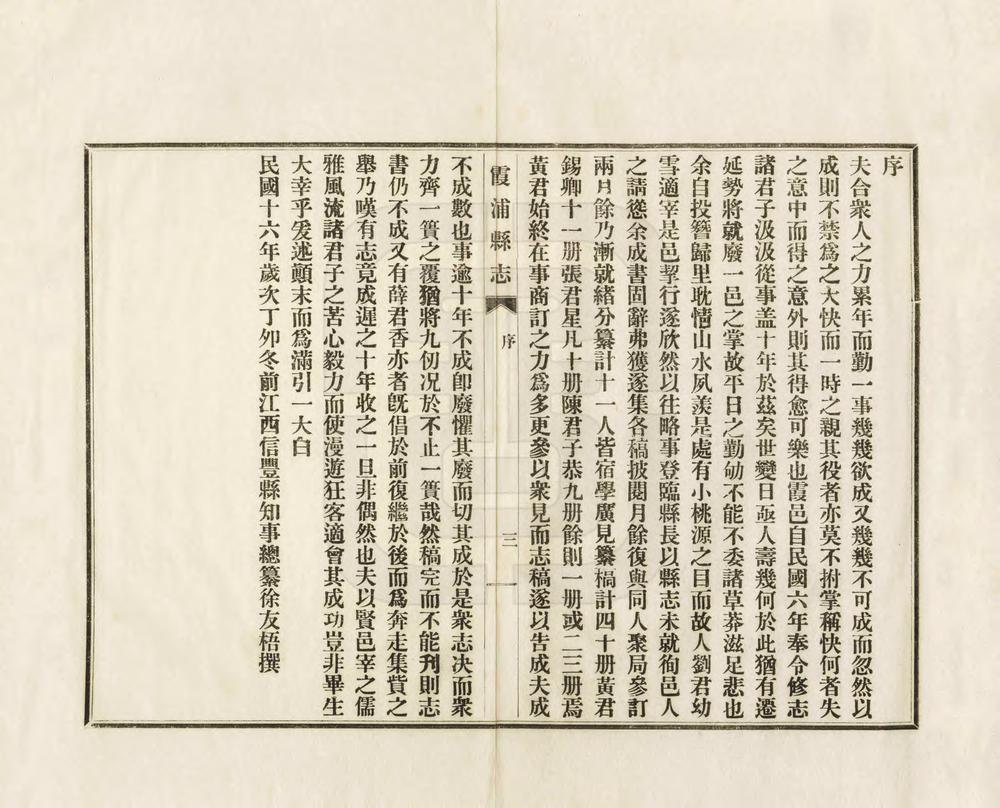 序
夫合衆人之力累年而勤一事幾幾欲成又幾幾不可成而忽然以
成則不禁爲之大快而一時之親其役者亦莫不拊掌稱快何者失
之意中而得之意外則其得愈可樂也霞邑自民國六年奉令修志
諸君子汲汲從事盖十年於茲矣世變日亟人壽幾何於此猶有遷
延勢將就廢一邑之掌故平日之勤劬不能不委諸草莽滋足悲也
余自投簪歸里耽情山水夙羨是處有小桃源之目而故人劉君幼
雪適宰是邑挈行遂欣然以往略事登臨縣長以縣志未就徇邑人
之請慫余成書固辭弗獲遂集各稿披閱月餘復與同人聚局參訂
兩月餘乃漸就緒分纂計十一人皆宿學廣見纂稿計四十册黃君
錫卿十一册張君星凡十册陳君子恭九册餘則一册或二三册焉
黃君始終在事商訂之力爲多更參以衆見而志稿遂以告成夫成
霞浦縣志 序 三
不成數也事逾十年不成卽廢懼其廢而切其成於是衆志决而衆
力齊一簣之覆猶將九仞况於不止一簣哉然稿完而不能刊則志
書仍不成又有薛君香亦者旣倡於前復繼於後而爲奔走集貲之
舉乃嘆有志竟成遲之十年收之一旦非偶然也夫以賢邑宰之儒
雅風流諸君子之苦心毅力而使漫遊狂客適會其成功豈非畢生
大幸乎爰述顚末而爲滿引一大白
民國十六年歲次丁夘冬前江西信豐縣知事總纂徐友梧撰